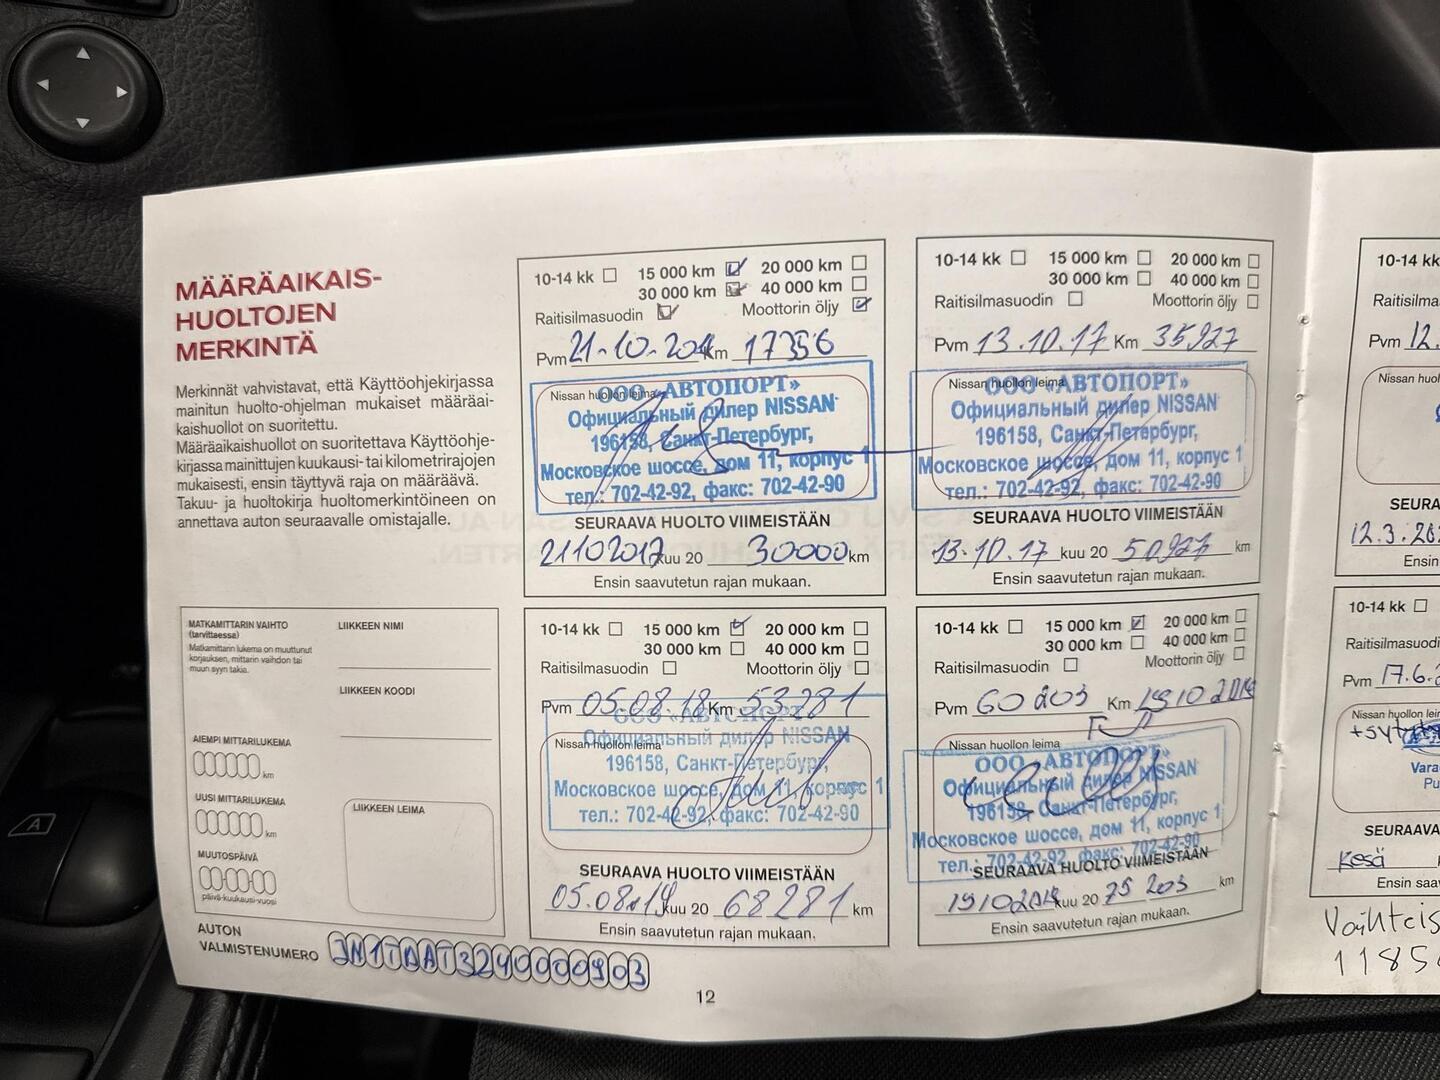 MÄÄRÄAIKAIS-
HUOLTOJEN
MERKINTÄ
Merkinnät vahvistavat, että Käyttöohjekirjassa
mainitun huolto-ohjelman mukaiset määräai-
kaishuollot on suoritettu.
Määräaikaishuollot on suoritettava Käyttöohje-
kirjassa mainittujen kuukausi- tai kilometrirajojen
mukaisesti, ensin täyttyvä raja on määräävä.
Takuu- ja huoltokirja huoltomerkintöineen on
annettava auton seuraavalle omistajalle.
MATKAMITTARIN VAIHTO
(tarvittaessa)
Matkamittarin lukema on muuttunut
korjauksen, mittarin vaihdon tai
muun syyn takia.
LIIKKEEN NIMI
LIIKKEEN KOODI
AIEMPI MITTARILUKEMA
km
UUSI MITTARILUKEMA
km
MUUTOSPÄIVÄ
päivä-kuukausi-vuosi
LIIKKEEN LEIMA
AUTON
VALMISTENUMERO JN1TDAT32U0000903
10-14 kk 15 000 km 20 000 km
30 000 km 40 000 km
Raitisilmasuodin Moottorin öljy
Pvm 21-10-201 Km 17356
Nissan huollon leima
ООО «АВТОПОРТ»
Официальный дилер NISSAN
196158, Санкт-Петербург,
Московское шоссе, дом 11, корпус 1
тел.: 702-42-92, факс: 702-42-90
SEURAAVA HUOLTO VIIMEISTÄÄN
21102017 kuu 20 30000 km
Ensin saavutetun rajan mukaan.
10-14 kk 15 000 km 20 000 km
30 000 km 40 000 km
Raitisilmasuodin Moottorin öljy
Pvm 13.10.17 Km 35927
Nissan huollon leima
ООО «АВТОПОРТ»
Официальный дилер NISSAN
196158, Санкт-Петербург,
Московское шоссе, дом 11, корпус 1
тел.: 702-42-92, факс: 702-42-90
SEURAAVA HUOLTO VIIMEISTÄÄN
13.10.17 kuu 20 50927 km
Ensin saavutetun rajan mukaan.
10-14 kk 15 000 km 20 000 km
30 000 km 40 000 km
Raitisilmasuodin Moottorin öljy
Pvm 05.08.18 Km 53281
Nissan huollon leima
ООО «АВТОПОРТ»
Официальный дилер NISSAN
196158, Санкт-Петербург,
Московское шоссе, дом 11, корпус 1
тел.: 702-42-92, факс: 702-42-90
SEURAAVA HUOLTO VIIMEISTÄÄN
05.08.19 kuu 20 68281 km
Ensin saavutetun rajan mukaan.
10-14 kk 15 000 km 20 000 km
30 000 km 40 000 km
Raitisilmasuodin Moottorin öljy
Pvm 60203 Km 1910201
Nissan huollon leima
ООО «АВТОПОРТ»
Официальный дилер NISSAN
196158, Санкт-Петербург,
Московское шоссе, дом 11, корпус 1
тел.: 702-42-92, факс: 702-42-90
SEURAAVA HUOLTO VIIMEISTÄÄN
191020 kuu 20 75 203 km
Ensin saavutetun rajan mukaan.
12
10-14 kk
Raitisilmas
Pvm 12.
Nissan h
SEURA
12.3.20
Ensin
10-14 kk
Raitisilmasu
Pvm 17.6.2
Nissan huollon lei
Vara
Pu
SEURAAVA
Kesä
Ensin saa
Vaihteis
1185